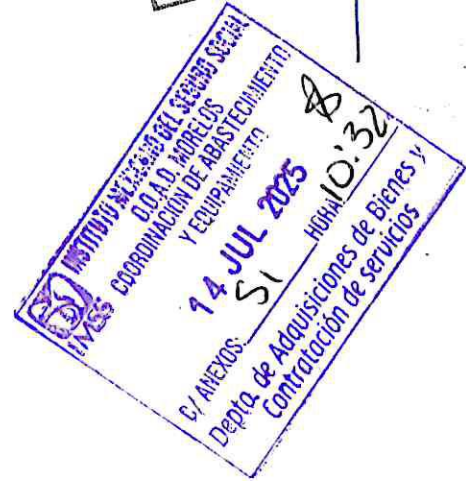 INSTITUTO MEXICANO DEL SEGURO SOCIAL
O.O.A.D. MORELOS
COORDINACIÓN DE ABASTECIMIENTO
Y EQUIPAMIENTO
IMSS
14 JUL 2025
C/ANEXOS: SI HORA 10:32
Depto. de Adquisiciones de Bienes y
Contratación de servicios